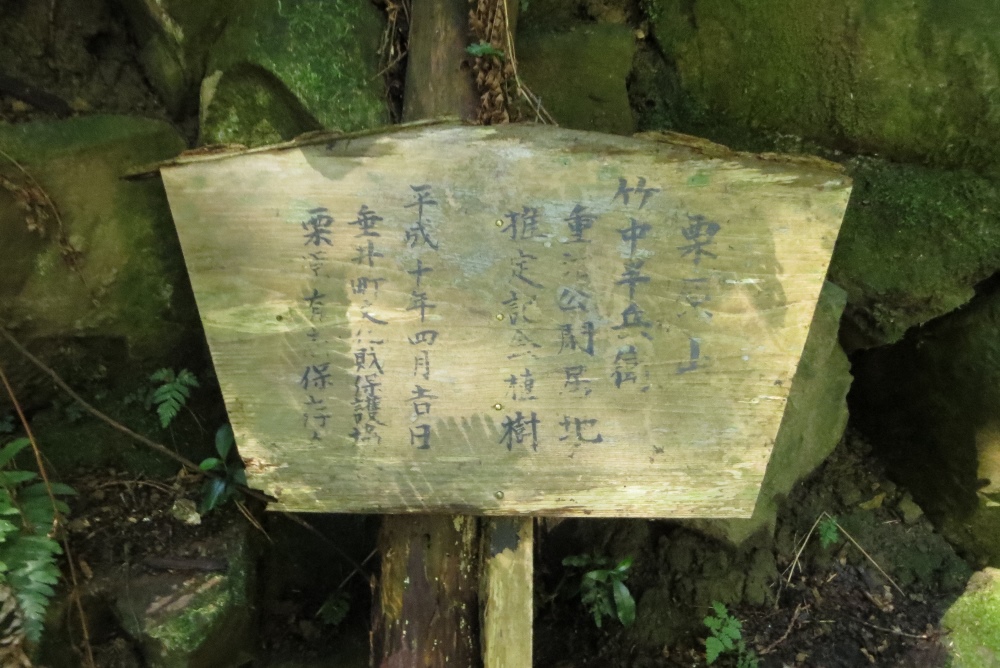 栗原山
竹中半兵衛
重治公閑居地
推定記念植樹
平成十年四月吉日
垂井町文化財保護協
栗原 有 保存